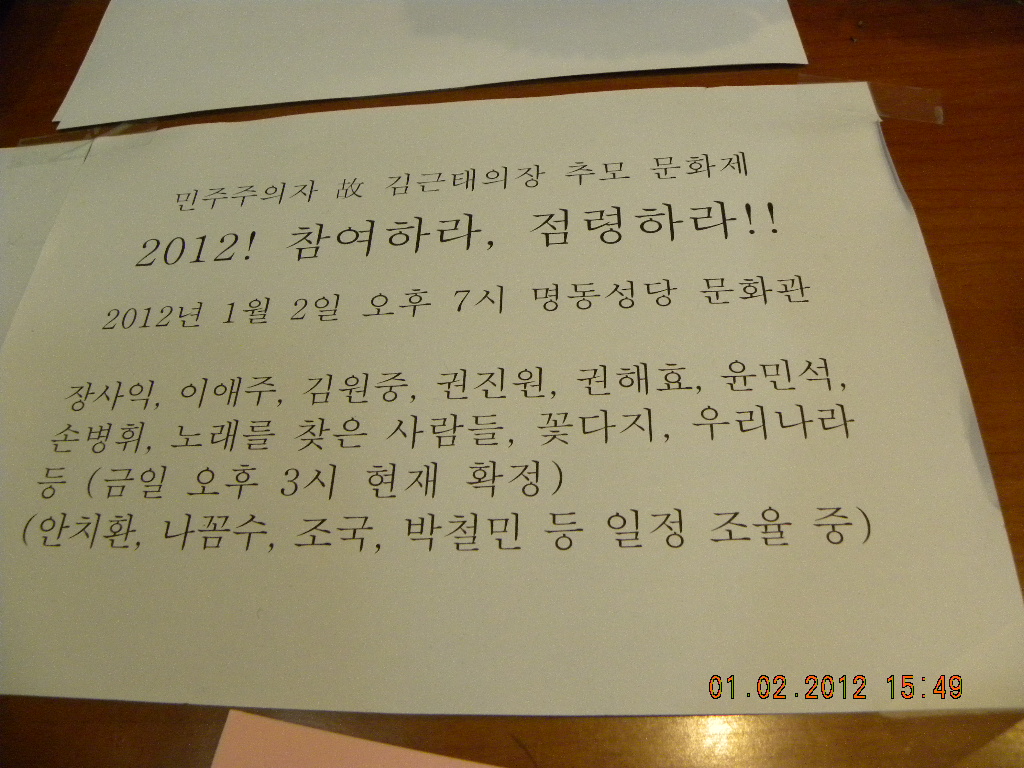 민주주의자 故 김근태의장 추모 문화제
2012! 참여하라, 점령하라!!
2012년 1월 2일 오후 7시 명동성당 문화관
장사익, 이애주, 김원중, 권진원, 권해효, 윤민석,
손병휘, 노래를 찾은 사람들, 꽃다지, 우리나라
등 (금일 오후 3시 현재 확정)
(안치환, 나꼼수, 조국, 박철민 등 일정 조율 중)
01.02.2012 15:49